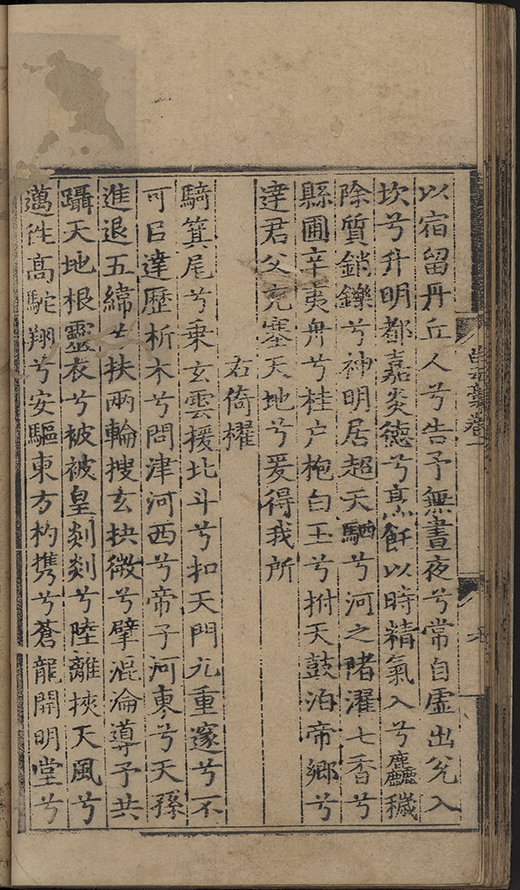 以宿留丹丘人兮告予無晝夜兮常自虛出兊入
坎兮升明都嘉炎德兮烹飪以時精氣入兮麤穢
除質銷鑠兮神明居超天駟兮河之睹濯七香兮
縣圃辛夷舟兮桂户枹白玉兮拊天鼓泊帝鄉兮
達君父充塞天地兮爰得我所
右倚櫂
騎箕尾兮乘玄雲援北斗兮扣天門九重邃兮不
可㠯達歷析木兮問津河西兮帝子河東兮天孫
進退五緯兮扶兩輪搜玄抉微兮擘混淪導予共
躡天地根靈衣兮被被皇剡剡兮陸離挾天風兮
邁徃高駝翔兮安驅東方杓携兮蒼龍開明堂兮